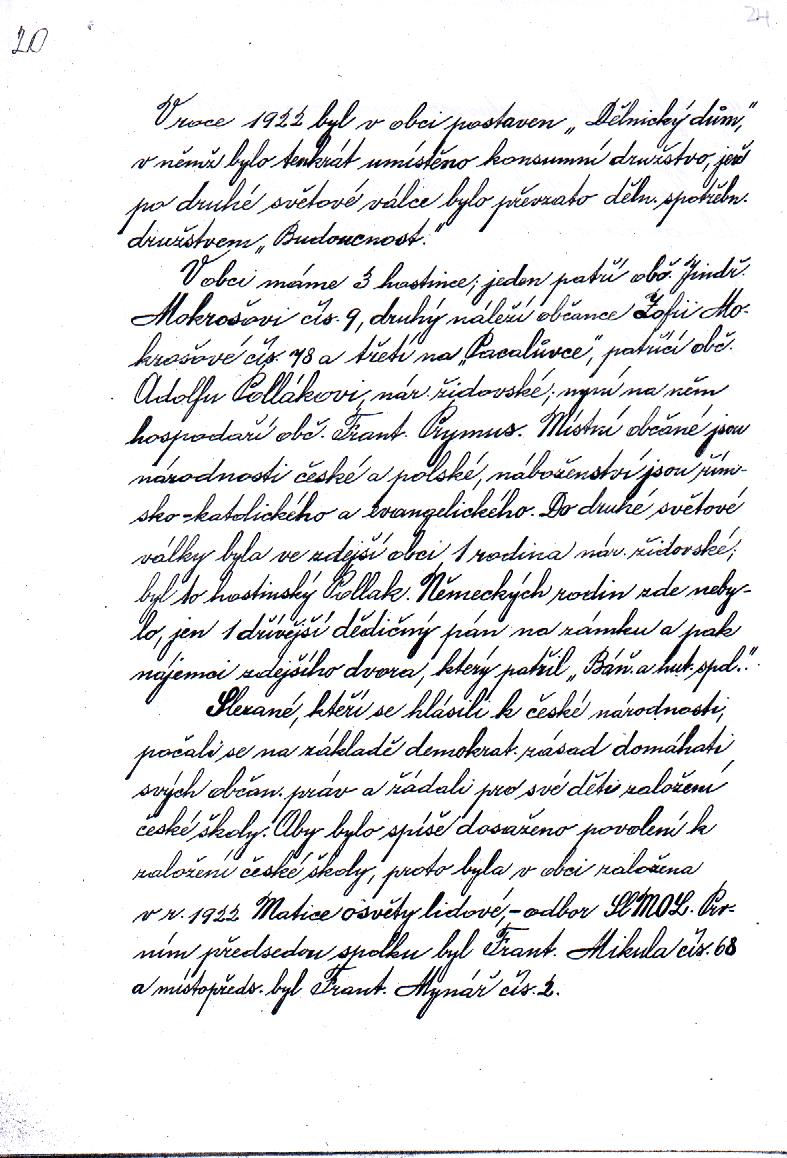 24
20
V roce 1922 byl v obci postaven „Dělnický dům,"
v němž bylo tenkrát umístěno konsumní družstvo, jež
po druhé světové válce bylo převzato děln. spotřebn.
družstvem „Budoucnost."
V obci máme 3 hostince; jeden patří obč. Jindř.
Mokrošovi čís. 9, druhý náleží občance Žofii Mo-
krošové čís. 78 a třetí na „Pacalůvce", patřící obč.
Adolfu Pollákovi, nár. židovské; nyní na něm
hospodaří obč. Frant. Prymus. Místní občané jsou
národnosti české a polské, náboženství jsou řím-
sko-katolického a evangelického. Do druhé světové
války byla ve zdejší obci 1 rodina nár. židovské;
byl to hostinský Pollak. Německých rodin zde neby-
lo, jen 1 dřívější dědičný pán na zámku a pak
nájemci zdejšího dvora, který patřil „Báň. a hut. spol.".
Slezané, kteří se hlásili k české národnosti,
počali se na základě demokrat. zásad domáhati
svých občan. práv a žádali pro své děti založení
české školy. Aby bylo spíše dosaženo povolení k
založení české školy, proto byla v obci založena
v r. 1922 Matice osvěty lidové,-odbor SlMOL. Prv-
ním předsedou spolku byl Frant. Mikula čís. 68
a místopřed s. byl Frant. Mynář čís. 2.